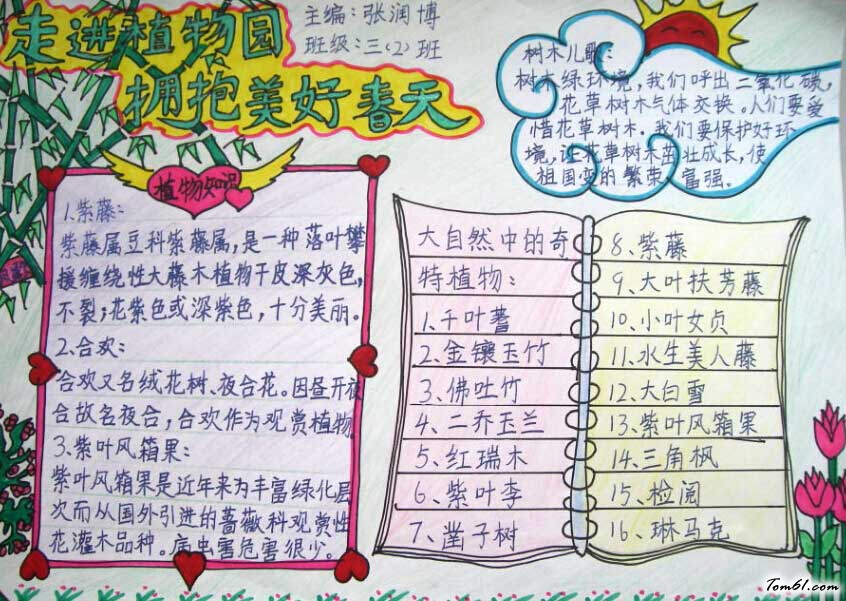 走进植物园
拥抱美好春天
主编:张润博
班级:三(2)班
树木儿歌:
树木绿环境,我们呼出二氧化碳,
花草树木气体交换。人们要爱
惜花草树木.我们要保护好环
境,让花草树木茁壮成长,使
祖国变的繁荣、富强。
植物知识
1.紫藤:
紫藤属豆科紫藤属,是一种落叶攀
援缠绕性大藤木植物干皮深灰色,
不裂;花紫色或深紫色,十分美丽。
2.合欢:
合欢又名绒花树、夜合花。因昼开夜
合故名夜合,合欢作为观赏植物
3.紫叶风箱果:
紫叶风箱果是近年来为丰富绿化层
次而从国外引进的蔷薇科观赏性
花灌木品种。病虫害危害很少。
大自然中的奇
特植物:
1.千叶蓍
2.金镶玉竹
3、佛吐竹
4、二乔玉兰
5、红瑞木
6、紫叶李
7、凿子树
8、紫藤
9、大叶扶芳藤
10、小叶女贞
11、水生美人藤
12、大白雪
13、紫叶风箱果
14、三角枫
15、检阅
16、琳马克
Tom61.com